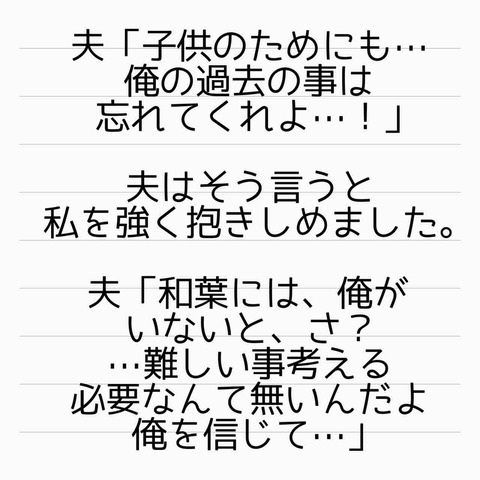 夫「子供のためにも…
俺の過去の事は
忘れてくれよ…！」
夫はそう言うと
私を強く抱きしめました。
夫「和葉には、俺が
いないと、さ？
…難しい事考える
必要なんて無いんだよ
俺を信じて…」